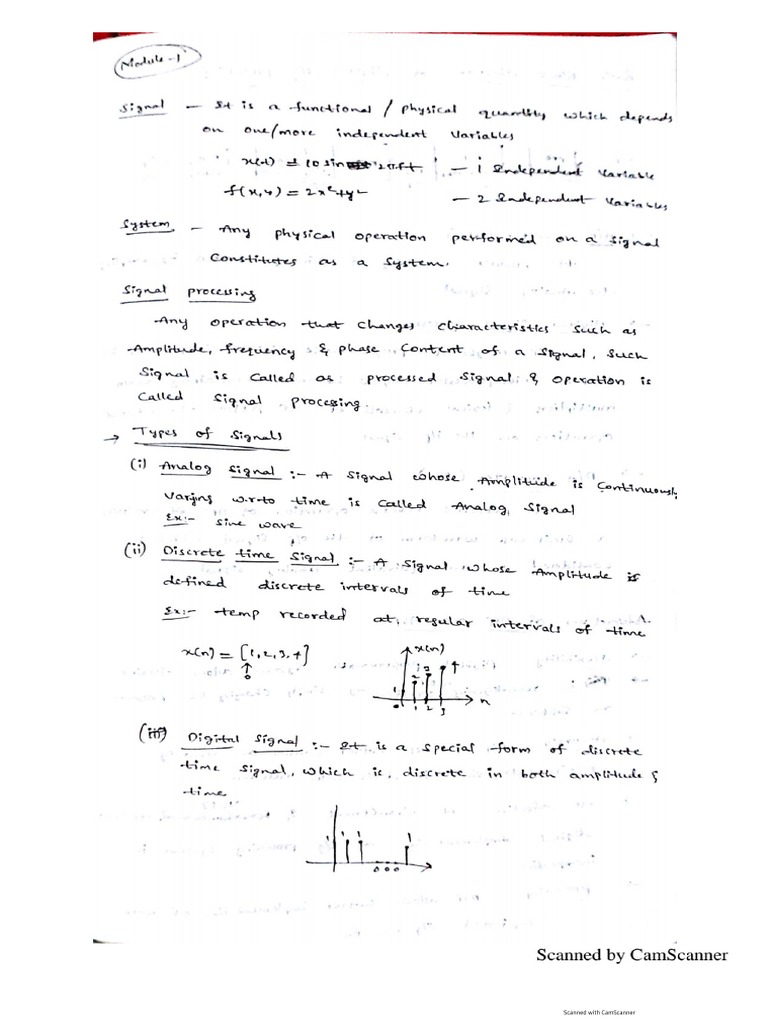 Module-1
Signal - It is a functional / physical quantity which depends
on one/more independent variables
x(t) = 10 sin 2πft - 1 Independent variable
f(x,y) = 2x²+y² - 2 Independent variables
System - Any physical operation performed on a signal
constitutes as a system.
Signal processing
Any operation that changes characteristics such as
Amplitude, frequency & phase content of a signal, such
signal is called as processed signal & operation is
called signal processing.
→ Types of signals
(i) Analog signal :- A signal whose Amplitude is continuously
varying w.r.to time is called Analog signal
Ex:- sine wave
(ii) Discrete time signal :- A signal whose Amplitude is
defined discrete intervals of time
Ex:- temp recorded at regular intervals of time
x(n) = [1, 2, 3, 4]
↑
0
x(n)
1 2 3 4
0 1 2 3 n
(iii) Digital signal :- It is a special form of discrete
time signal, which is discrete in both amplitude &
time
1 1 1 1
0 0 0
Scanned by CamScanner
Scanned with CamScanner